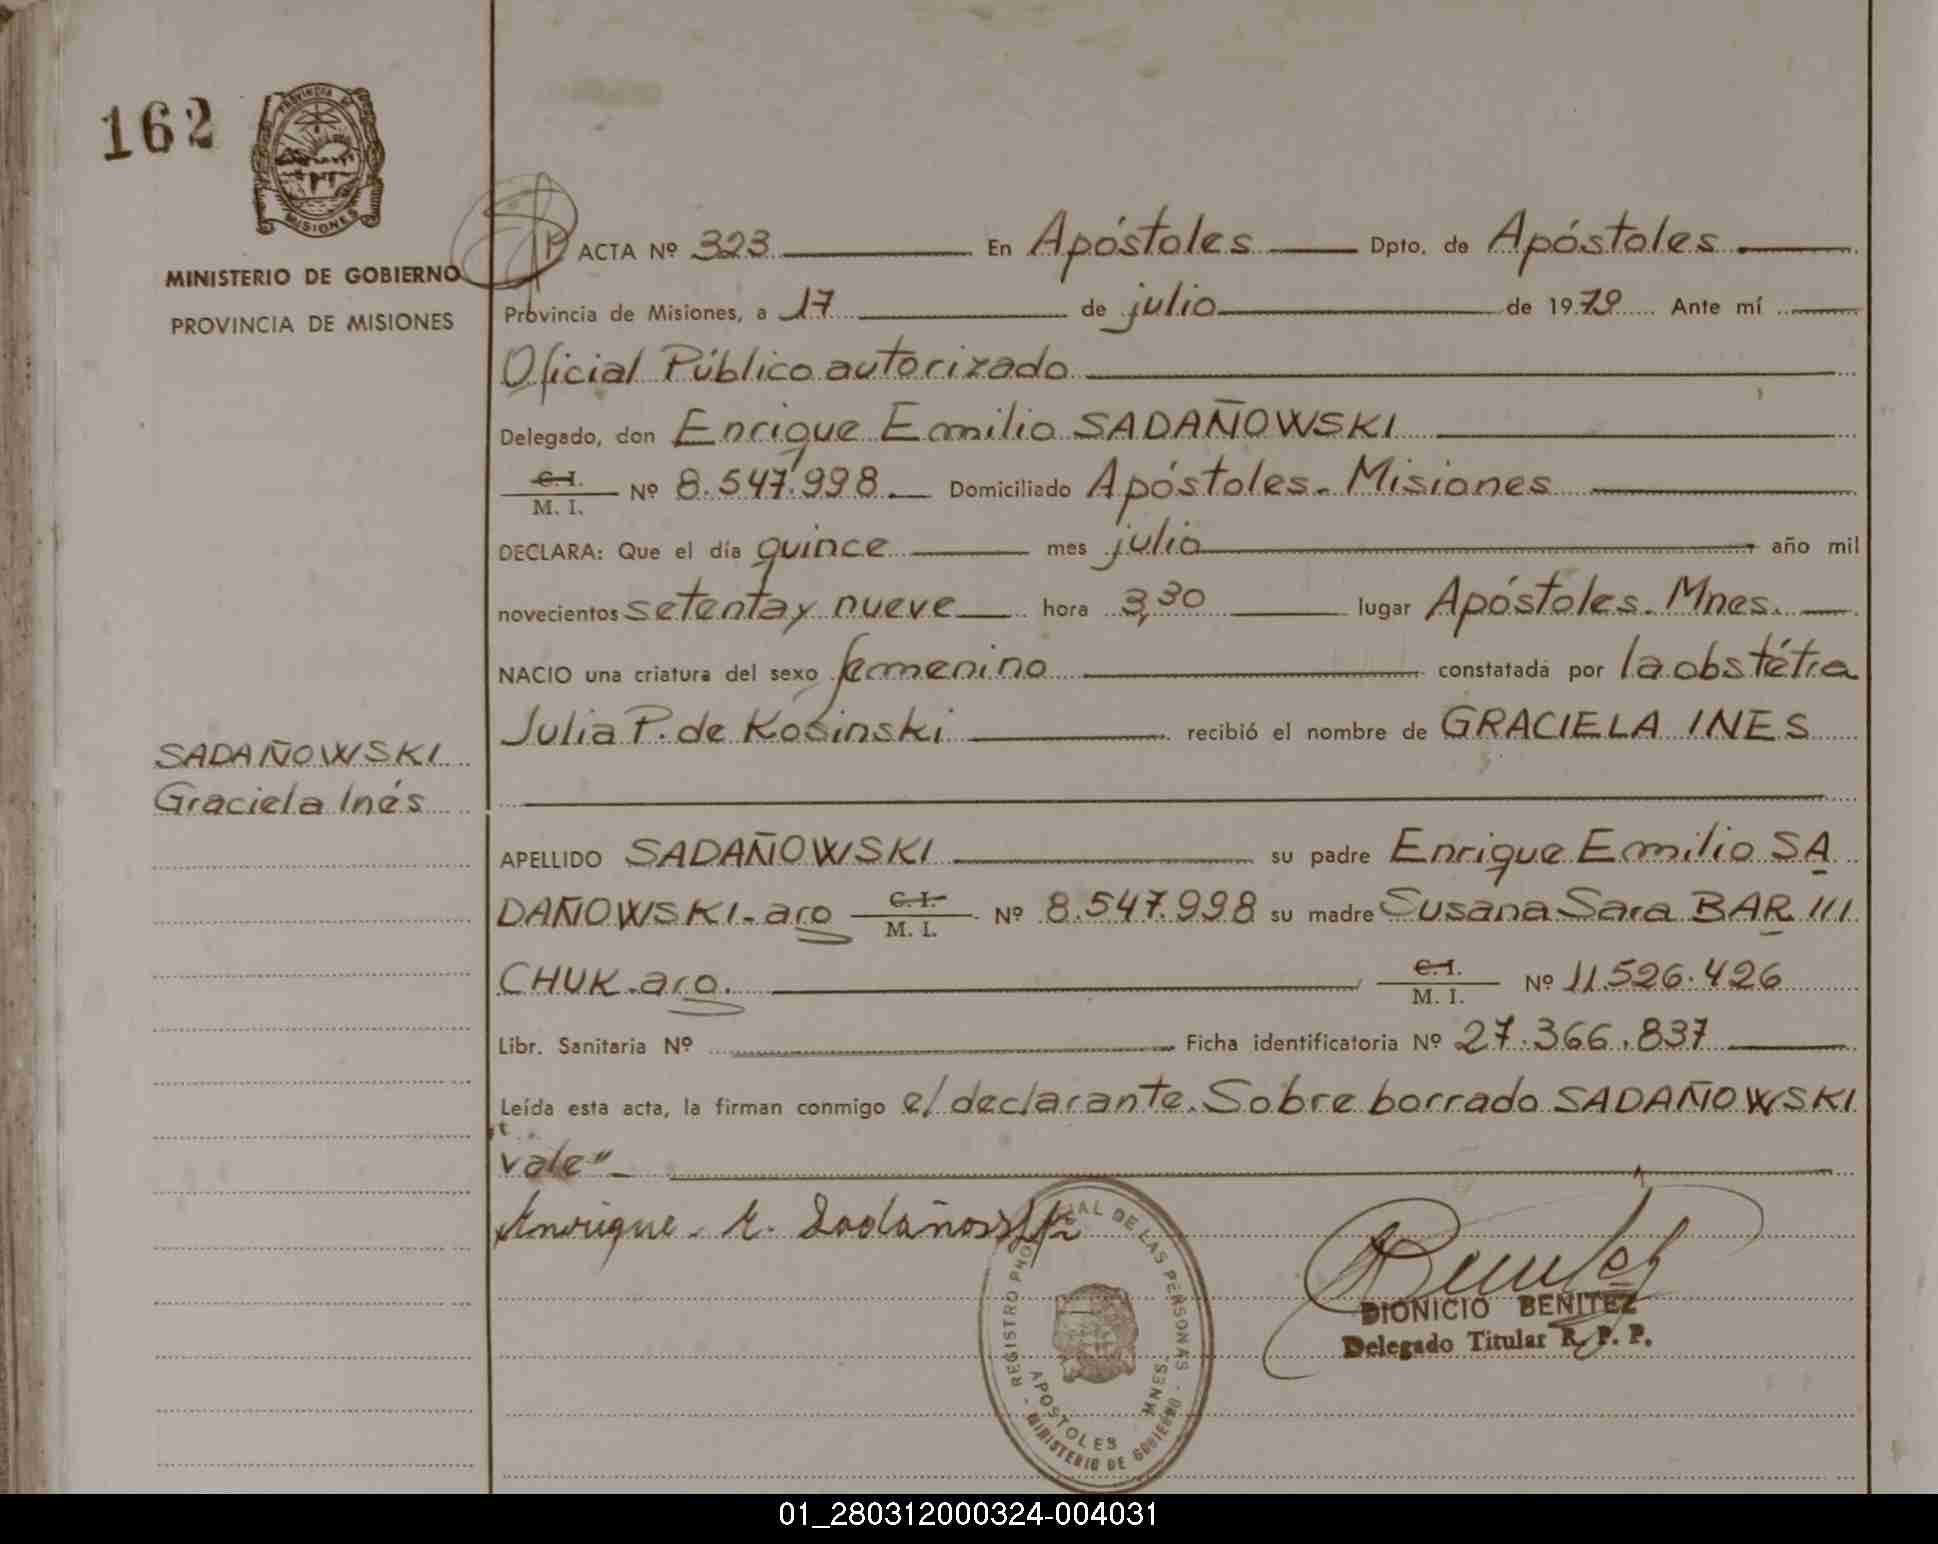 162
PROVINCIA DE
MISIONES
MINISTERIO DE GOBIERNO
PROVINCIA DE MISIONES
SADAÑOWSKI
Graciela Inés
ACTA Nº 323 En Apóstoles Dpto. de Apóstoles
Provincia de Misiones, a 17 de julio de 1979 Ante mí
Oficial Público autorizado
Delegado, don Enrique Emilio SADAÑOWSKI
C. I.
M. I. Nº 8.547.998 Domiciliado Apóstoles. Misiones
DECLARA: Que el día quince mes julio año mil
novecientos setenta y nueve hora 3,30 lugar Apóstoles. Mnes.
NACIO una criatura del sexo femenino constatada por la obstétra
Julia P. de Kosinski recibió el nombre de GRACIELA INES
APELLIDO SADAÑOWSKI su padre Enrique Emilio SA
DAÑOWSKI-aro C. I.
M. I. Nº 8.547.998 su madre Susana Sara BAR
CHUK.aro. C. I.
M. I. Nº 11.526.426
Libr. Sanitaria Nº Ficha identificatoria Nº 27.366.837
Leída esta acta, la firman conmigo el declarante. Sobre borrado SADAÑOWSKI
"vale"
Enrique E. Sadañowski
DIONICIO BENITEZ
Delegado Titular R. P. P.
REGISTRO PROVINCIAL DE LAS PERSONAS
APOSTOLES MNES
MINISTERIO DE GOBIERNO
01_280312000324-004031